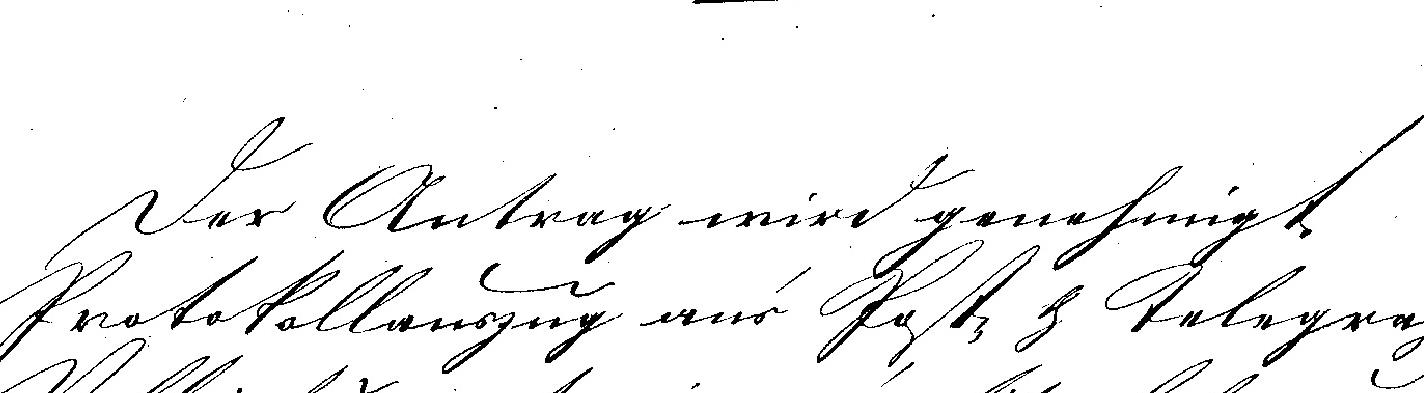 Der Antrag wird genehmigt
Protokollauszug ans Post- & Telegra